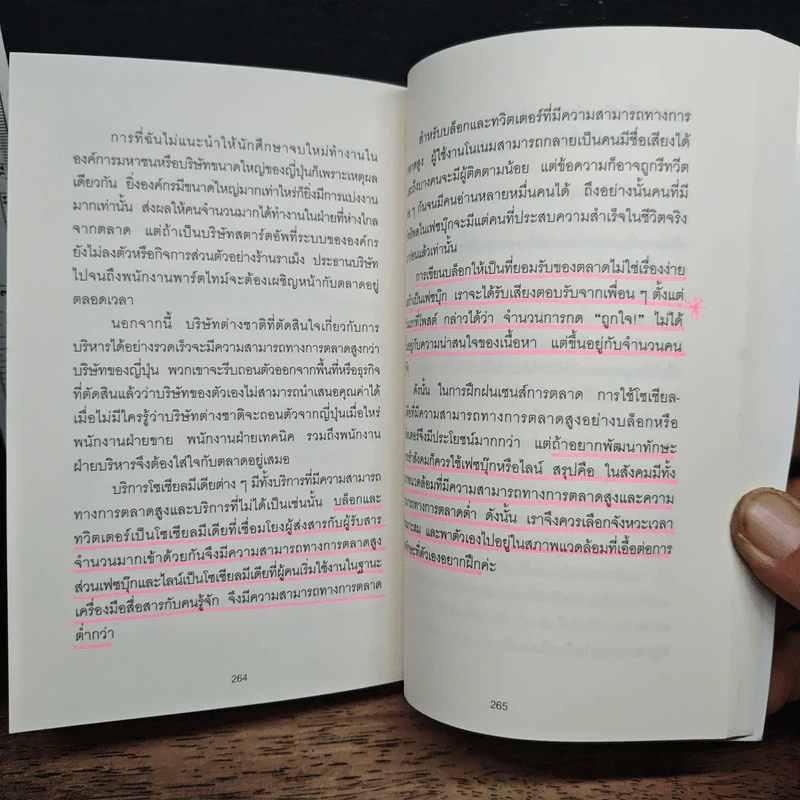 การที่ฉันไม่แนะนำให้นักศึกษาจบใหม่ทำงานใน
องค์การมหาชนหรือบริษัทขนาดใหญ่ของญี่ปุ่นก็เพราะเหตุผล
เดียวกัน ยิ่งองค์กรมีขนาดใหญ่มากเท่าไหร่ก็ยิ่งมีการแบ่งงาน
มากเท่านั้น ส่งผลให้คนจำนวนมากได้ทำงานในฝ่ายที่ห่างไกล
จากตลาด แต่ถ้าเป็นบริษัทสตาร์ตอัพที่ระบบขององค์กร
ยังไม่ลงตัวหรือกิจการส่วนตัวอย่างร้านราเม็ง ประธานบริษัท
ไปจนถึงพนักงานพาร์ตไทม์จะต้องเผชิญหน้ากับตลาดอยู่
ตลอดเวลา
นอกจากนี้ บริษัทต่างชาติที่ตัดสินใจเกี่ยวกับการ
บริหารได้อย่างรวดเร็วจะมีความสามารถทางการตลาดสูงกว่า
บริษัทของญี่ปุ่น พวกเขาจะรีบถอนตัวออกจากพื้นที่หรือธุรกิจ
ที่ตัดสินแล้วว่าบริษัทของตัวเองไม่สามารถนำเสนอคุณค่าได้
เมื่อไม่มีใครรู้ว่าบริษัทต่างชาติจะถอนตัวจากญี่ปุ่นเมื่อไหร่
พนักงานฝ่ายขาย พนักงานฝ่ายเทคนิค รวมถึงพนักงาน
ฝ่ายบริหารจึงต้องใส่ใจกับตลาดอยู่เสมอ
บริการโซเชียลมีเดียต่าง ๆ มีทั้งบริการที่มีความสามารถ
ทางการตลาดสูงและบริการที่ไม่ได้เป็นเช่นนั้น บล็อกและ
ทวิตเตอร์เป็นโซเชียลมีเดียที่เชื่อมโยงผู้ส่งสารกับผู้รับสาร
จำนวนมากเข้าด้วยกันจึงมีความสามารถทางการตลาดสูง
ส่วนเฟซบุ๊กและไลน์เป็นโซเชียลมีเดียที่ผู้คนเริ่มใช้งานในฐานะ
เครื่องมือสื่อสารกับคนรู้จัก จึงมีความสามารถทางการตลาด
ต่ำกว่า
264
สำหรับบล็อกและทวิตเตอร์ที่มีความสามารถทางการ
ผู้ใช้งานโนเนมสามารถกลายเป็นคนมีชื่อเสียงได้
บางคนจะมีผู้ติดตามน้อย แต่ข้อความก็อาจถูกรีทวีต
ๆ กันจนมีคนอ่านหลายหมื่นคนได้ ถึงอย่างนั้นคนที่มี
ในเฟซบุ๊กจะมีแต่คนที่ประสบความสำเร็จในชีวิตจริง
ก่อนแล้วเท่านั้น
การเขียนบล็อกให้เป็นที่ยอมรับของตลาดไม่ใช่เรื่องง่าย
เป็นเฟซบุ๊ก เราจะได้รับเสียงตอบรับจากเพื่อน ๆ ตั้งแต่
ที่โพสต์ กล่าวได้ว่า จำนวนการกด “ถูกใจ!” ไม่ได้
กับความน่าสนใจของเนื้อหา แต่ขึ้นอยู่กับจำนวนคน
ดังนั้น ในการฝึกฝนเซนส์การตลาด การใช้โซเชียล-
ที่มีความสามารถทางการตลาดสูงอย่างบล็อกหรือ
จึงมีประโยชน์มากกว่า แต่ถ้าอยากพัฒนาทักษะ
สังคมก็ควรใช้เฟซบุ๊กหรือไลน์ สรุปคือ ในสังคมมีทั้ง
แวดล้อมที่มีความสามารถทางการตลาดสูงและความ
ทางการตลาดต่ำ ดังนั้น เราจึงควรเลือกจังหวะเวลา
และพาตัวเองไปอยู่ในสภาพแวดล้อมที่เอื้อต่อการ
ที่ตัวเองอยากฝึกค่ะ
265